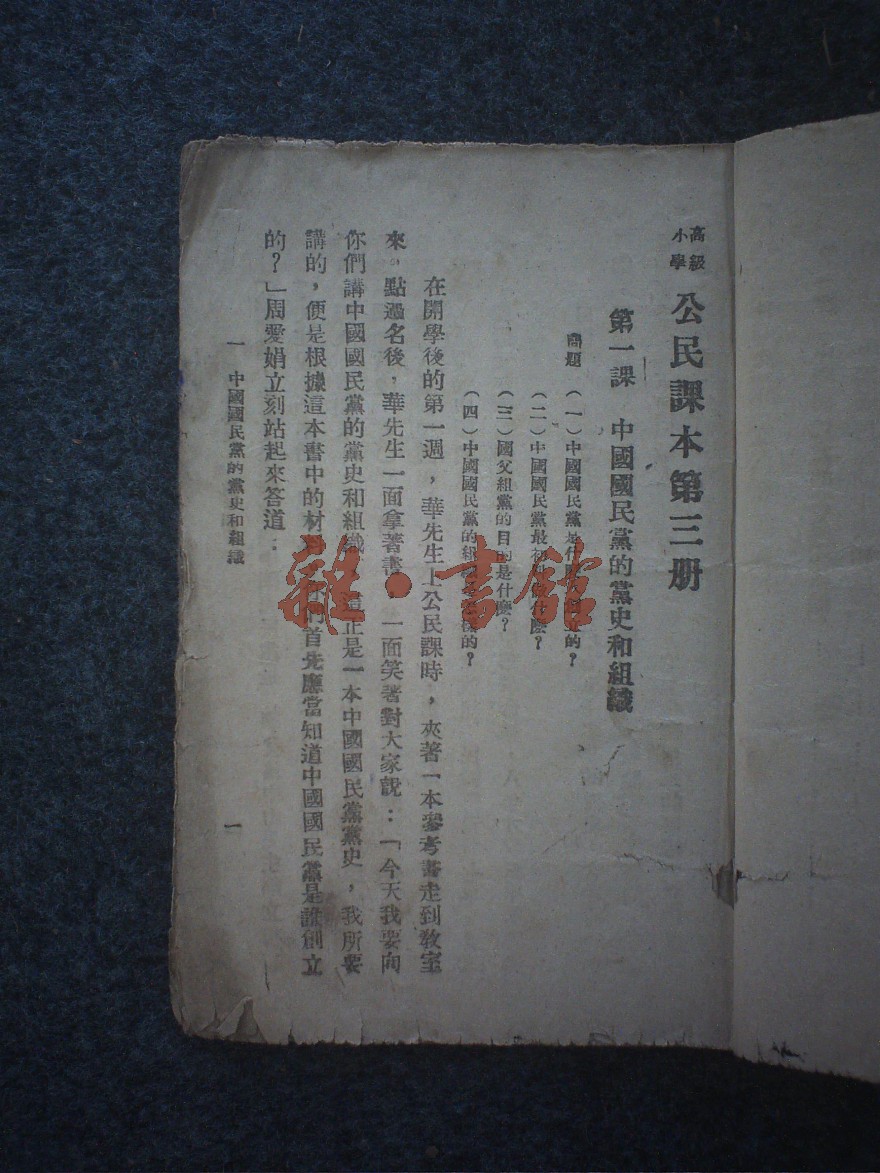 高級
小學
公民課本第三册
第一課　中國國民黨的黨史和組織
問題　(一)中國國民黨是什 的？
(二)中國國民黨最初 什麼？
(三)國父組黨的目的是什麼？
(四)中國國民黨的組織 的？
在開學後的第一週，華先生上公民課時，夾著一本參考書走到敎室
來。點過名後，華先生一面拿著書，一面笑著對大家說：「今天我要向
你們講中國國民黨的黨史和組織 這正是一本中國國民黨黨史，我所要
講的，便是根據這本書中的材料 你們首先應當知道中國國民黨是誰創立
的？」周愛娟立刻站起來答道：
一　中國國民黨的黨史和組織
一
雜·書館